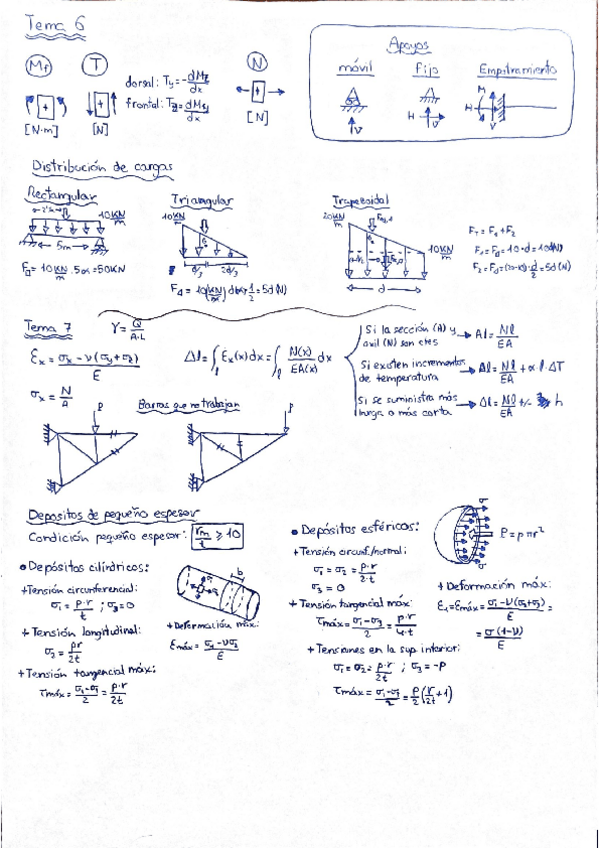 Tema 6
Mf T N
dorsal: Ty = -dMz/dx
frontal: Tz = dMy/dx
[N·m] [N] [N]
Apoyos
móvil fijo Empotramiento
V H V H M V
Distribución de cargas
Rectangular Triangular Trapezoidal
10 KN/m 5m
Fd = 10 KN/m · 5m = 50KN
10 KN/m d/3 2d/3
20 KN/m 10 KN/m d
FT = F1 + F2
Tema 7
γ = Q/A·L
Ex = σx - ν(σy+σz)/E
σx = N/A
Δl = ∫l Ex(x)dx = ∫l N(x)/EA(x) dx
Si la sección (A) y axil (N) son ctes → Δl = Nl/EA
Si existen incrementos de temperatura → Δl = Nl/EA + α·l·ΔT
Si se suministra más larga o más corta → Δl = Nl/EA +/- h
Barras que no trabajan
P P
Depositos de pequeño espesor
Condición pequeño espesor: rm/t ≥ 10
• Depósitos cilíndricos:
+ Tensión circunferencial:
σ1 = p·r/t ; σ3 = 0
+ Tensión longitudinal:
σ2 = pr/2t
+ Tensión tangencial máx:
τmáx = σ1-σ3/2 = p·r/2t
b
+ Deformación máx:
Emáx = σ1-νσ2/E
• Depósitos esféricos:
+ Tensión circunf./normal:
σ1 = σ2 = p·r/2·t
σ3 = 0
+ Tensión tangencial máx:
τmáx = σ1-σ3/2 = p·r/4·t
+ Tensiones en la sup. interior:
σ1 = σ2 = p·r/2t ; σ3 = -p
τmáx = σ1-σ3/2 = p/2 (r/2t + 1)
σ
P = p π r²
σ
+ Deformación máx:
E1 = Emáx = σ1-ν(σ2+σ3)/E =
= σ(1-ν)/E